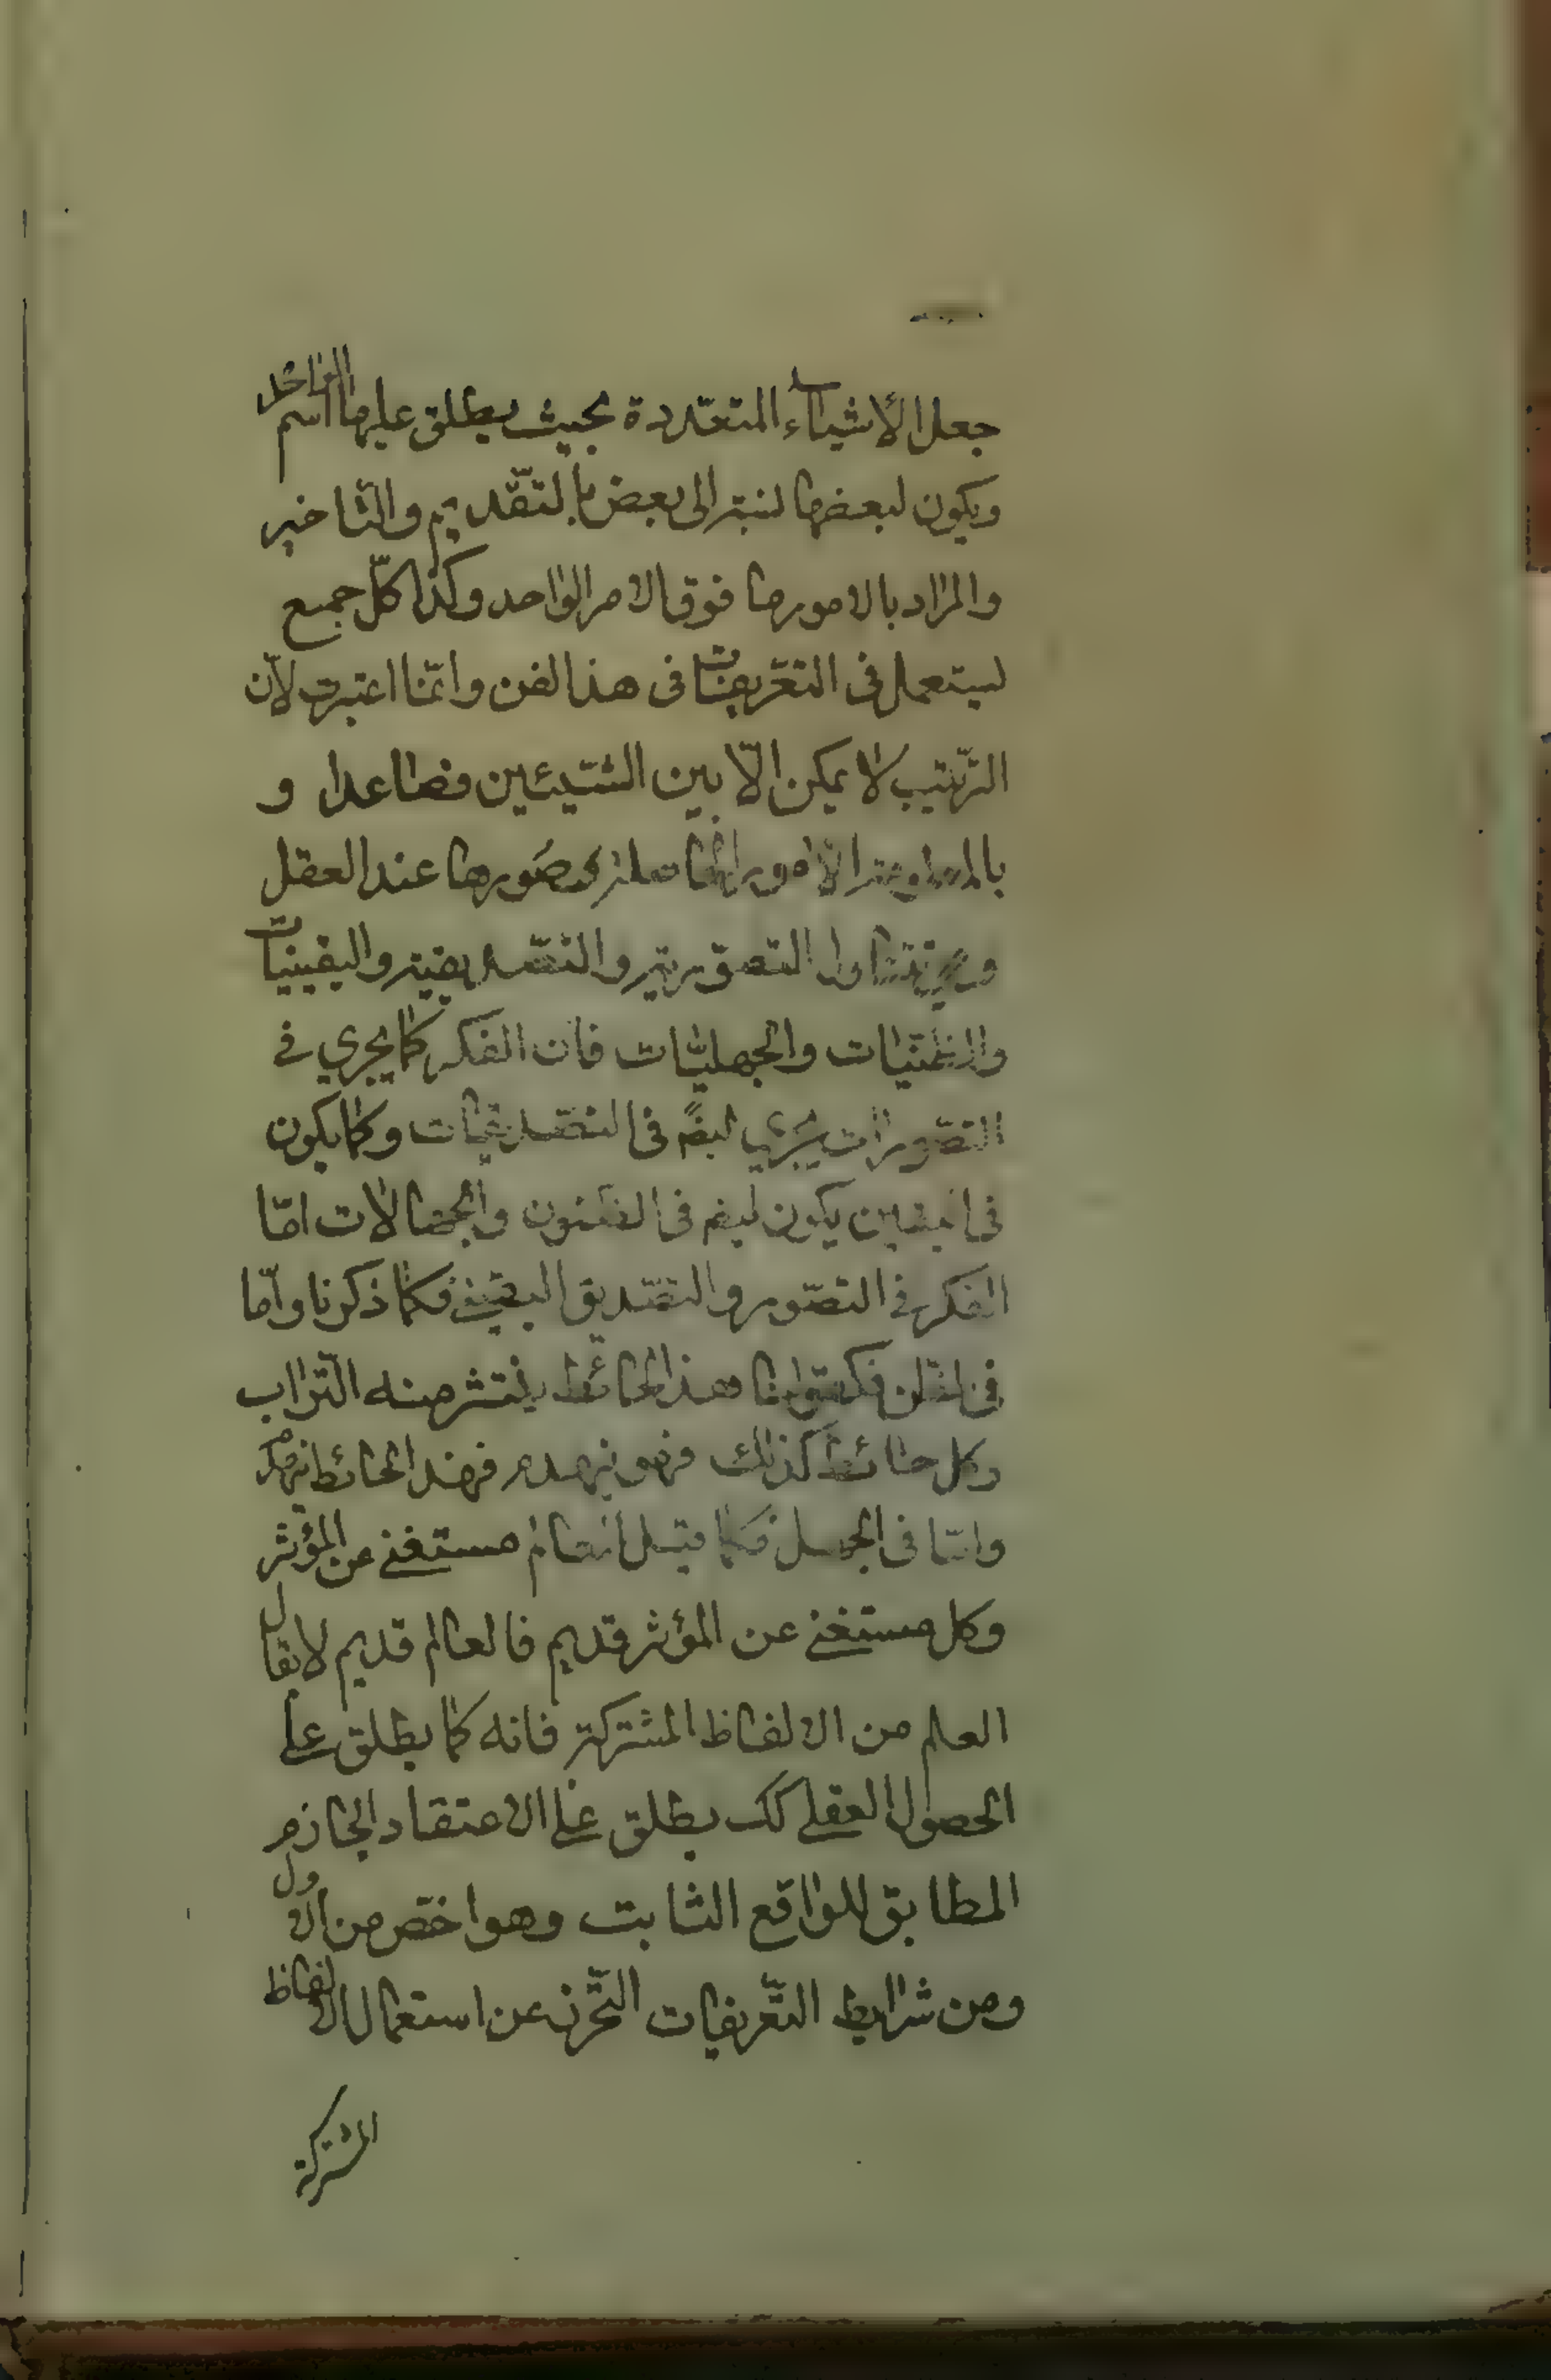 جعل الأشياء المتعّددة بحيث يطلق عليها اسم الواحد
ويكون لبعضها نسبة الى بعض بالتقّديم والتّاخير
والمراد بالامور ما فوق الامر الواحد وكذا كلّ جمع
يستعمل فى التعّريفات فى هذا لفن وانمّا اعتبرت لأنّ
الترّتيب لا يمكن الاّ بين الشيّئين فصاعدا و
بالمعلومة الأمور الحاصلة صورها عند العقل
وهى تتناول التصوّرية والتصّديقية واليقينيات
والظنيّات والجهليّات فان الفكر كما يجري في
التصّورات يجري ايضً فى التصّديقات وكما يكون
فى اليقين يكون ايضم فى الظنون والجهالات امّا
الفكر في التصّور والتصّديق اليقيني فكما ذكرنا وامّا
فى الظن فكقولنا هذا الحائط ينتثر منه التّراب
وكل حائط كذلك فهو ينهدم فهذا الحائط ينهدم
وامّا فى الجهل فكما قيل العالم مستغني عن المؤثر
وكل مستغني عن المؤثر قديم فالعالم قديم لا يقال
العلم من الالفاظ المشتركة فانه كما يطلق على
الحصول العقلي كك يطلق على الاعتقاد الجازم
المطابق للواقع الثابت وهو اخصّ من الاول
ومن شرايط التعّريفات التّحرز عن استعمال الالفاظ
المشتركة